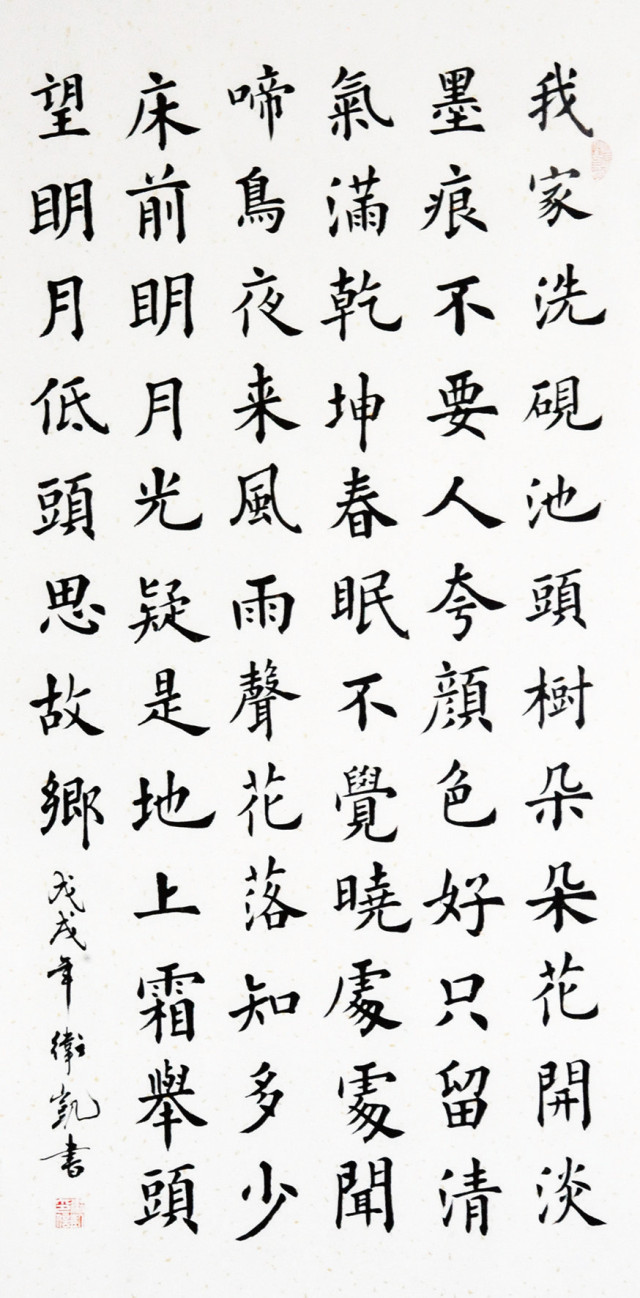 我家洗硯池頭樹朵朵花開淡
墨痕不要人夸顔色好只留清
氣滿乾坤春眠不覺曉處處聞
啼鳥夜来風雨聲花落知多少
床前明月光疑是地上霜舉頭
望明月低頭思故鄉
戊戌年衛凱书